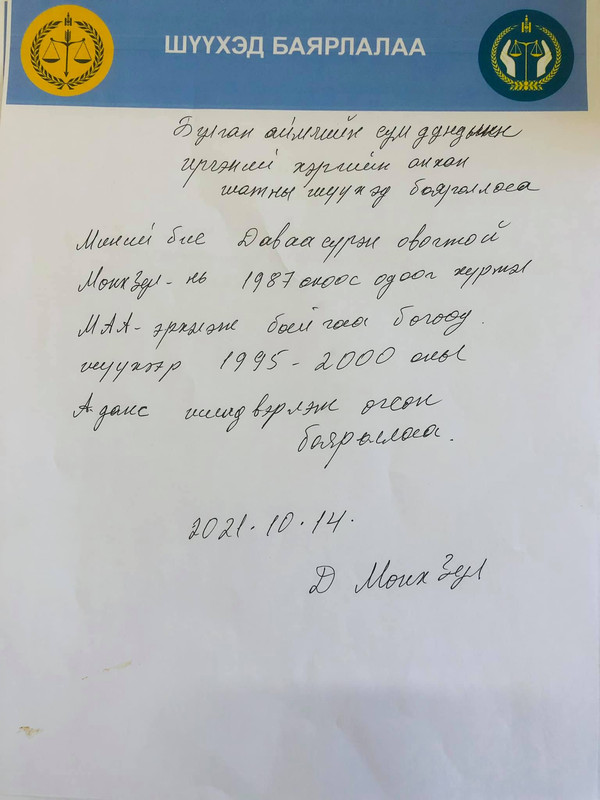 ШҮҮХЭД БАЯРЛАЛАА
Булган аймгийн сум дундын
иргэний хэргийн анхан
шатны шүүхэд баярлалаа
Миний бие Даваасүрэн овогтой
МөнхЗул- нь 1987 оноос одоог хүртэл
МАА- эрхлэж байгаа бөгөөд.
шүүхээр 1995 - 2000 оны
А данс шийдвэрлэж өгсөн
баярлалаа.
2021. 10. 14.
Д МөнхЗул